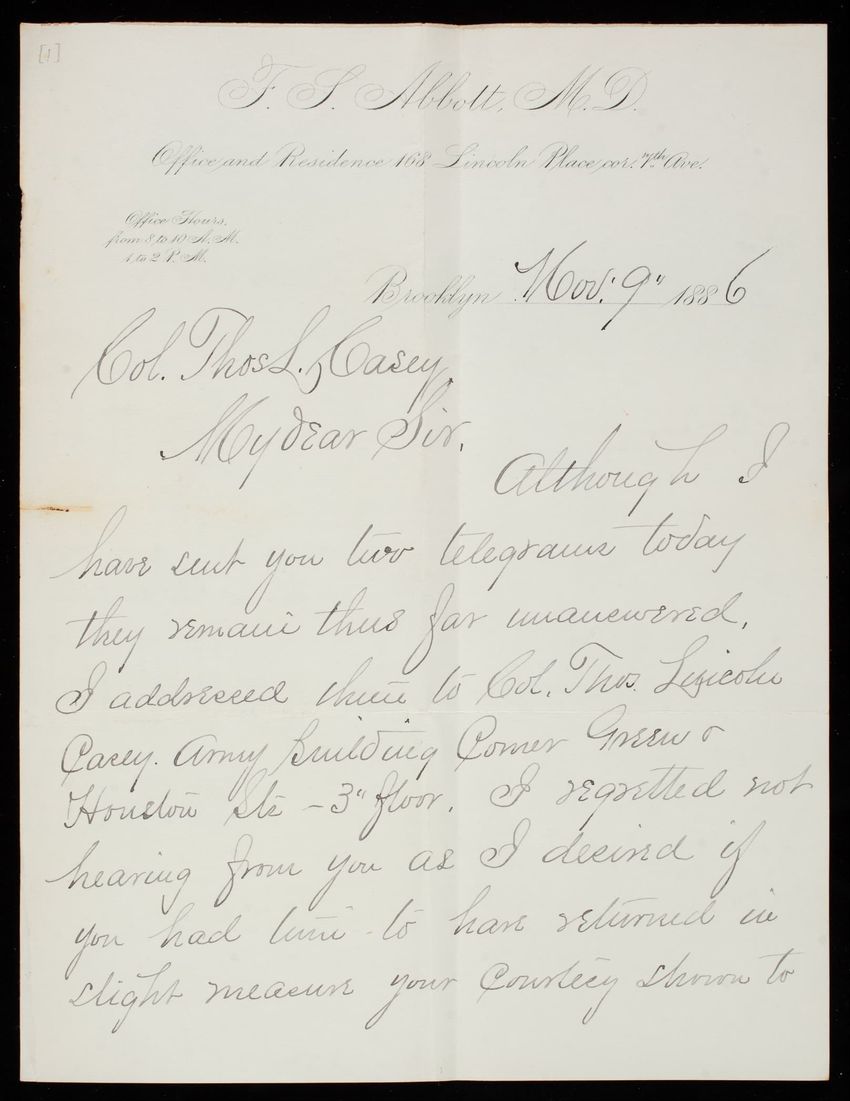 [1]
F. S. Abbott, M.D.
Office and Residence 168 Lincoln Place cor. 7th Ave.
Office Hours.
from 8 to 10 A.M.
1 to 2 P.M.
Brooklyn Nov. 9" 1886
Col. Thos L. Casey
My dear Sir,
Although I
have sent you two telegrams today
they remain thus far unanswered.
I addressed them to Col. Thos. Lincoln
Casey. Army Building Corner Green &
Houston Sts - 3" floor. I regretted not
hearing from you as I desired if
you had time to have returned in
slight measure your Courtesy shown to